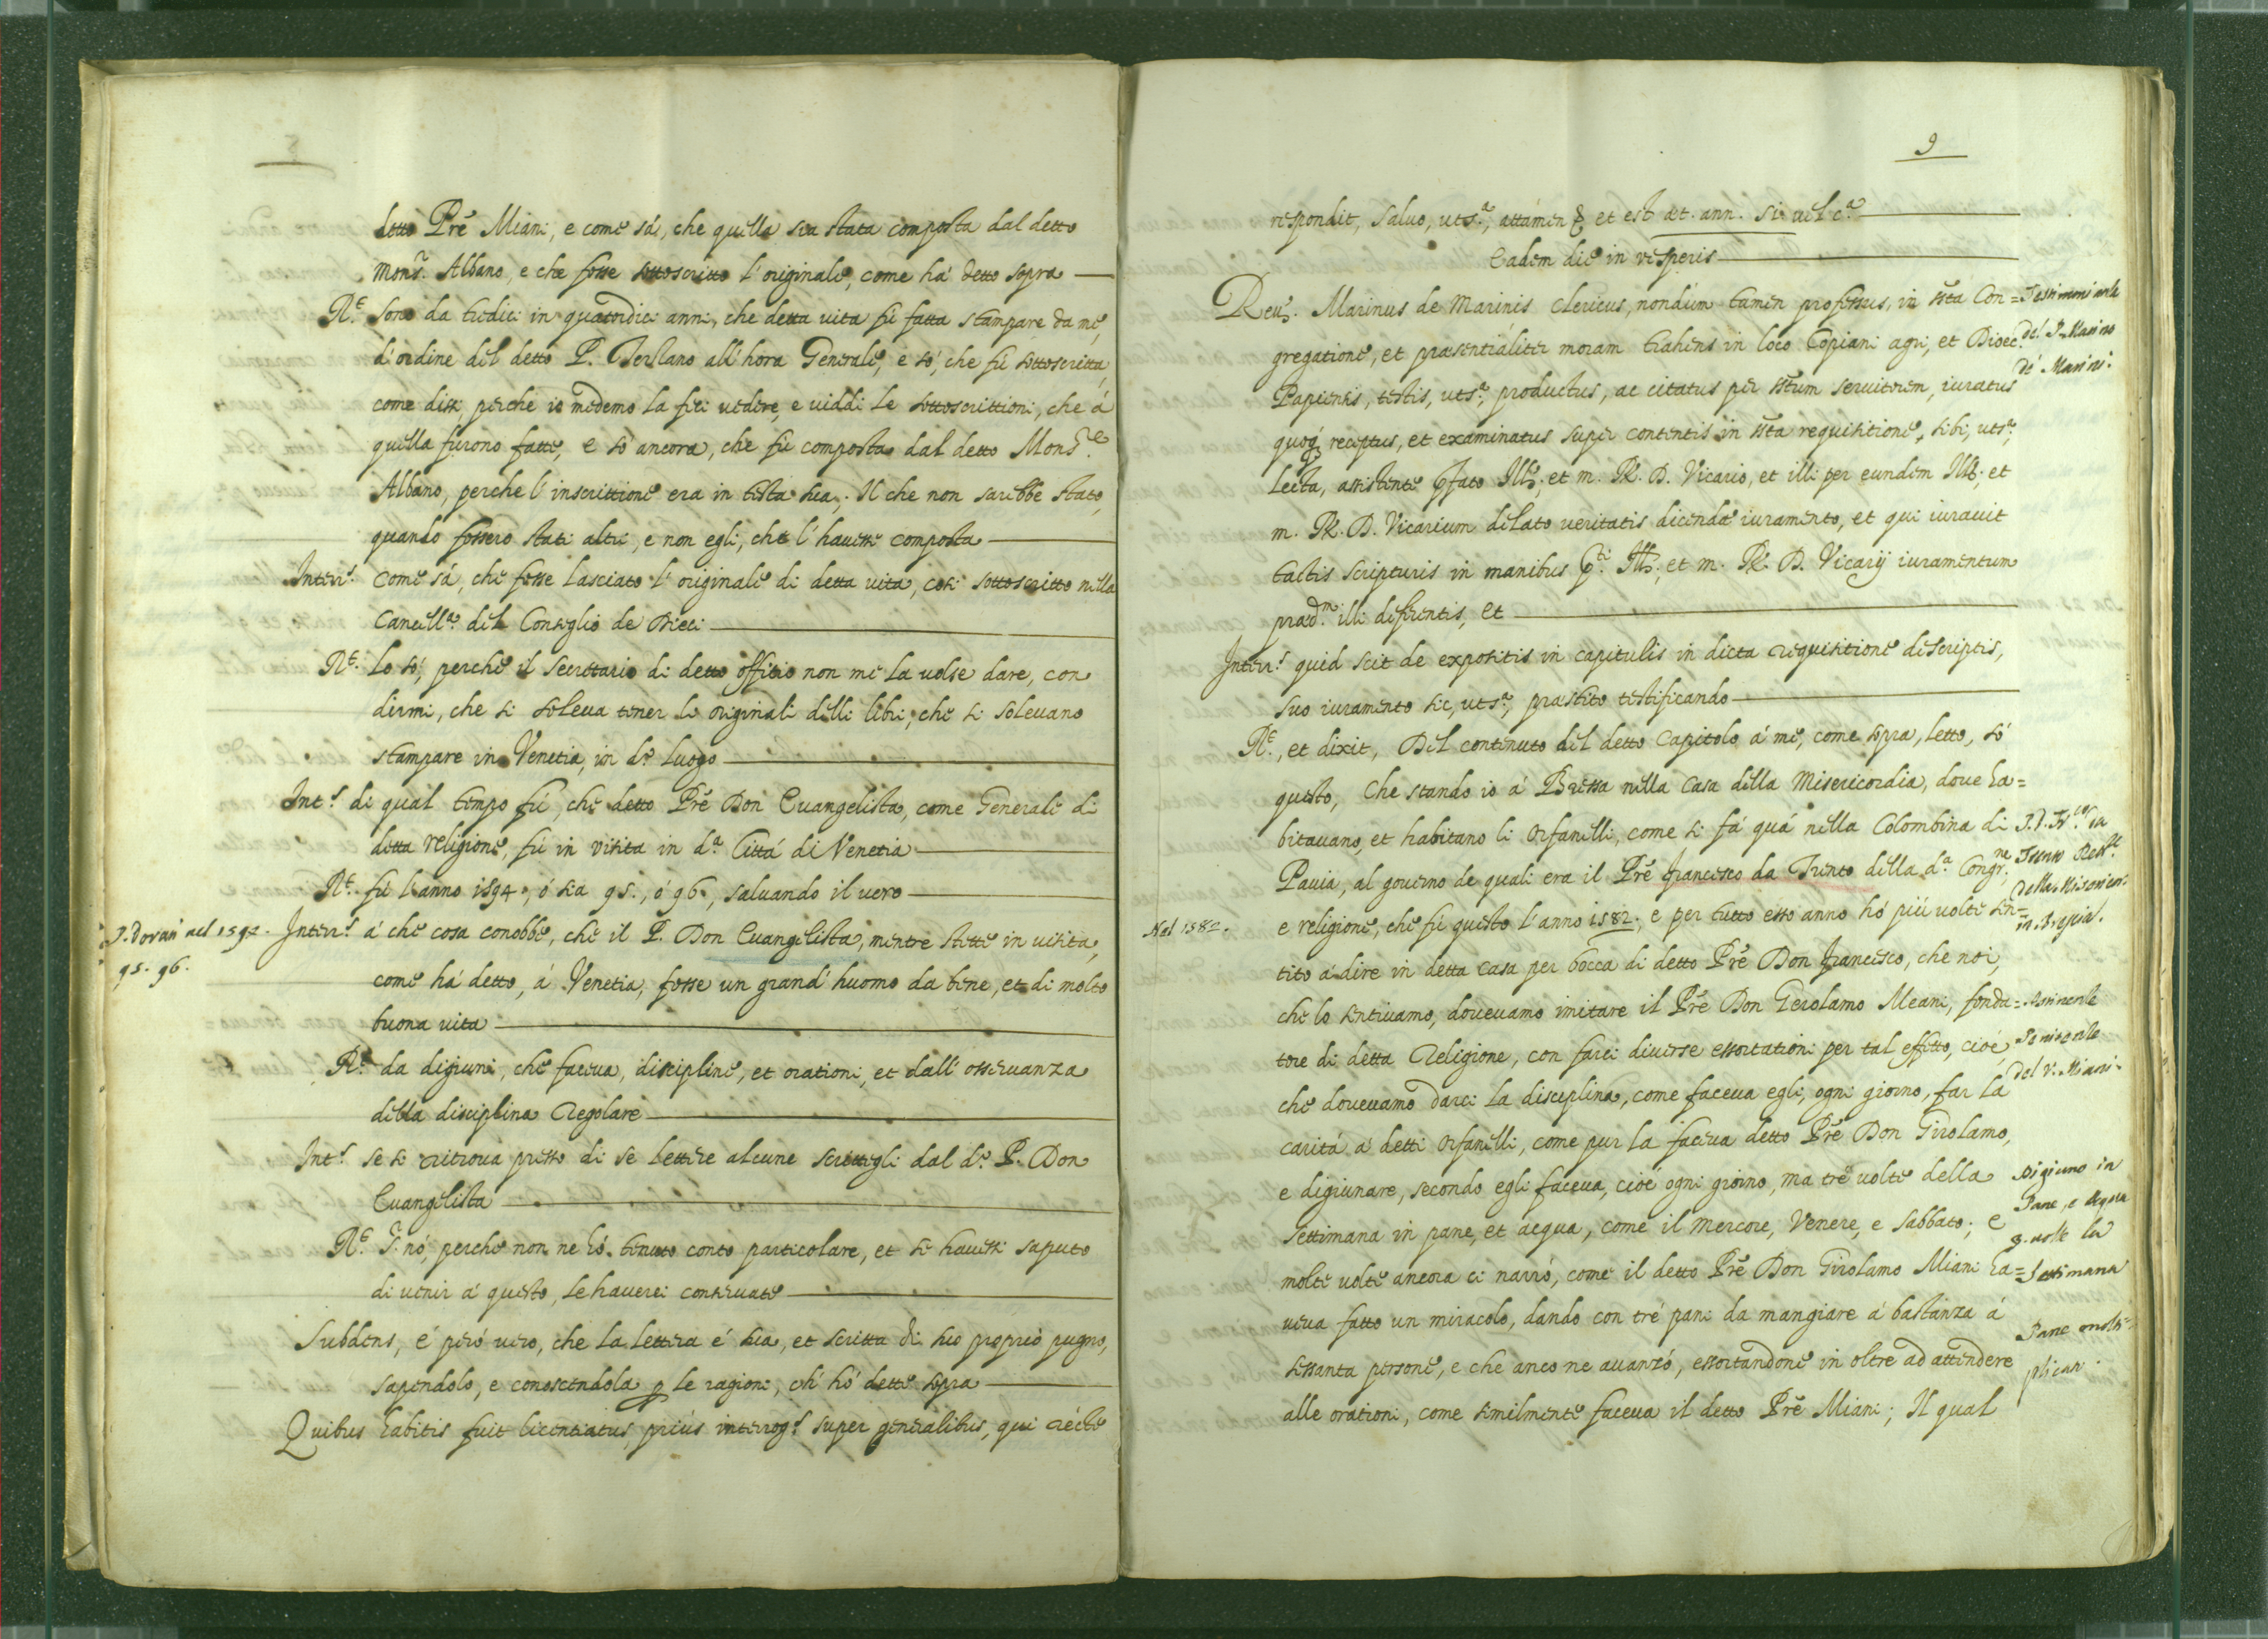 detto Prẽ Miani, e come sá, che quella sia stata composta dal detto
Mons.r Albano, e che fosse sottoscritto l'originale, come há detto sopra
R.t Sono da tredici in quatordici anni, che detta vita fú fatta stampare da mé,
d'ordine del detto P. Terzano all'hora Generale, e só, che fú sottoscritta,
come dissi, perche io medemo la feci vedere, e viddi le sottoscrittioni, che á
quella furono fatte, e só ancora, che fú composta dal detto Mons.re
Albano, perche l'inscrittione era in testa sua; Il che non sarebbe stato,
quando fossero stati altri, e non egli, che l'havesse composta
Interr.s Come sá, che fosse lasciato l'originale di detta vita, cosi sottoscritto nella
Cancell.a del Consiglio de Dieci
R.t Lo só, perche il Secretario di detto offitio non me la volse dare, con
dirmi, che si soleva tener li originali delli libri, che si solevano
stampare in Venetia, in d.o luogo
Int.s di qual tempo fú, che detto Prẽ Don Evangelista, come Generale di
detta religione, fú in visita in d.a Cittá di Venetia
R.t fú l'anno 1594, ó sia 95., ó 96., salvando il vero
P. Dorati nel 1594.
95. 96.
Interr.s á che cosa conobbe, che il P. Don Evangelista, mentre stette in visita,
come há detto, á Venetia, fosse un grand'huomo da bene, et di molto
buona vita
R.t da digiuni, che faceva, discipline, et orationi, et dall'osservanza
della disciplina regolare
Int.s se si ritrova presso di se lettere alcune scrittegli dal d.o P. Don
Evangelista
R.t S.r nó, perche non ne hó tenuto conto particolare, et se havessi saputo
di venir á questo, le haverei conservate
Subdens, é peró vero, che la lettera é sua, et scritta di suo proprio pugno,
sapendolo, e conoscendola ꝑ le ragioni, ch'hó dette sopra
Quibus habitis fuit licentiatus, priùs interrog.s super generalibus, qui rectè
9
respondit, salvo, uts.a, attamen & et est æt. ann. 51 vel c.a
Eadem die in vesperis
Rev. Marinus de Marinis Clericus, nondùm tamen professus, in ss̃ta Con=
gregatione, et præsentialiter moram trahens in loco Copiani agri, et Dioec.
Papiensis, testis, uts.a, productus, ac citatus per ss̃tum servitorem, iuratus
quoq; receptus, et examinatus super contentis in ss̃ta requisitione, sibi, uts.a,
lecta, assistente ꝓfato Ill., et m. R. D. Vicario, et illi per eundem Ill. et
m. R. D. Vicarium delato veritatis dicendæ iuramento, et qui iuravit
tactis scripturis in manibus ꝓ.ti Ill., et m. R. D. Vicarij iuramentum
præd.m illi deferentis, et
Testimoniale
del P. Marino
dé Marini.
Interr.s quid scit de expositis in capitulis in dicta requisitione descriptis,
suo iuramento sic, uts.a, præstito testificando
R.t, et dixit, Del continuto del detto Capitolo á mé, come sopra, letto, só
questo, Che stando io á Bressa nella Casa della Misericordia, dove ha=
bitavano, et habitano li orfanelli, come si fá quá nella Colombina di
Pavia, al governo de quali era il Prẽ Francesco da Trento della d.a Congr.ne
e religione, che fú questo l'anno 1582; e per tutto esso anno hó piú volte sen=
tito á dire in detta casa per bocca di detto Prẽ Don Francesco, che noi,
che lo sentivamo, dovevamo imitare il Prẽ Don Gerolamo Meani, fonda=
tore di detta Religione, con farci diverse essortationi per tal effetto, cioé,
che dovevamo darci la disciplina, come faceva egli, ogni giorno, far la
caritá á detti orfanelli, come pur la faceva detto Prẽ Don Girolamo,
e digiunare, secondo egli faceva, cioé ogni giorno, ma tré volte della
settimana in pane, et acqua, come il Mercore, Venere, e Sabbato; e
molte volte ancora ci narró, come il detto Prẽ Don Girolamo Miani ha=
veva fatto un miracolo, dando con tré pani da mangiare á bastanza á
sessanta persone, e che anco ne avanzó, essortandone in oltre ad attendere
alle orationi, come similmente faceva il detto Prẽ Miani; Il qual
Nel 1582.
Trento Rett.e
della Misericor:
in Brescia.
Penitenze
del V. Miani.
Digiuno in
Pane, e Acqua
3. volte la
Settimana
Pane molti=
plicati.